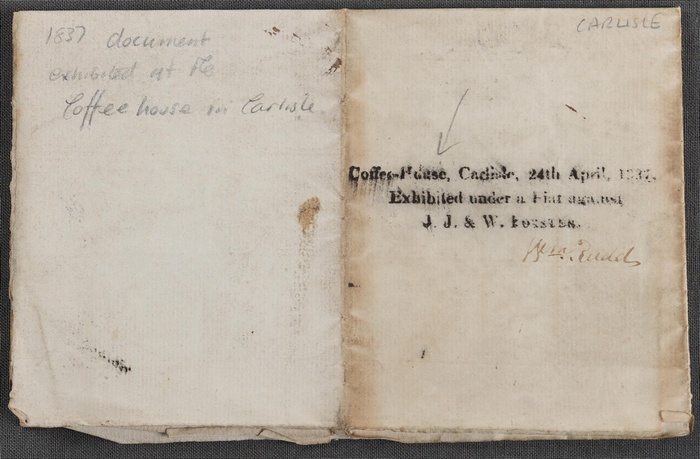 1837 document
exhibited at the
Coffee house in Carlisle
CARLISLE
Coffee-House, Carlisle, 24th April, 1837.
Exhibited under a Fiat against
J. J. & W. Forster.
Wm. Rudd